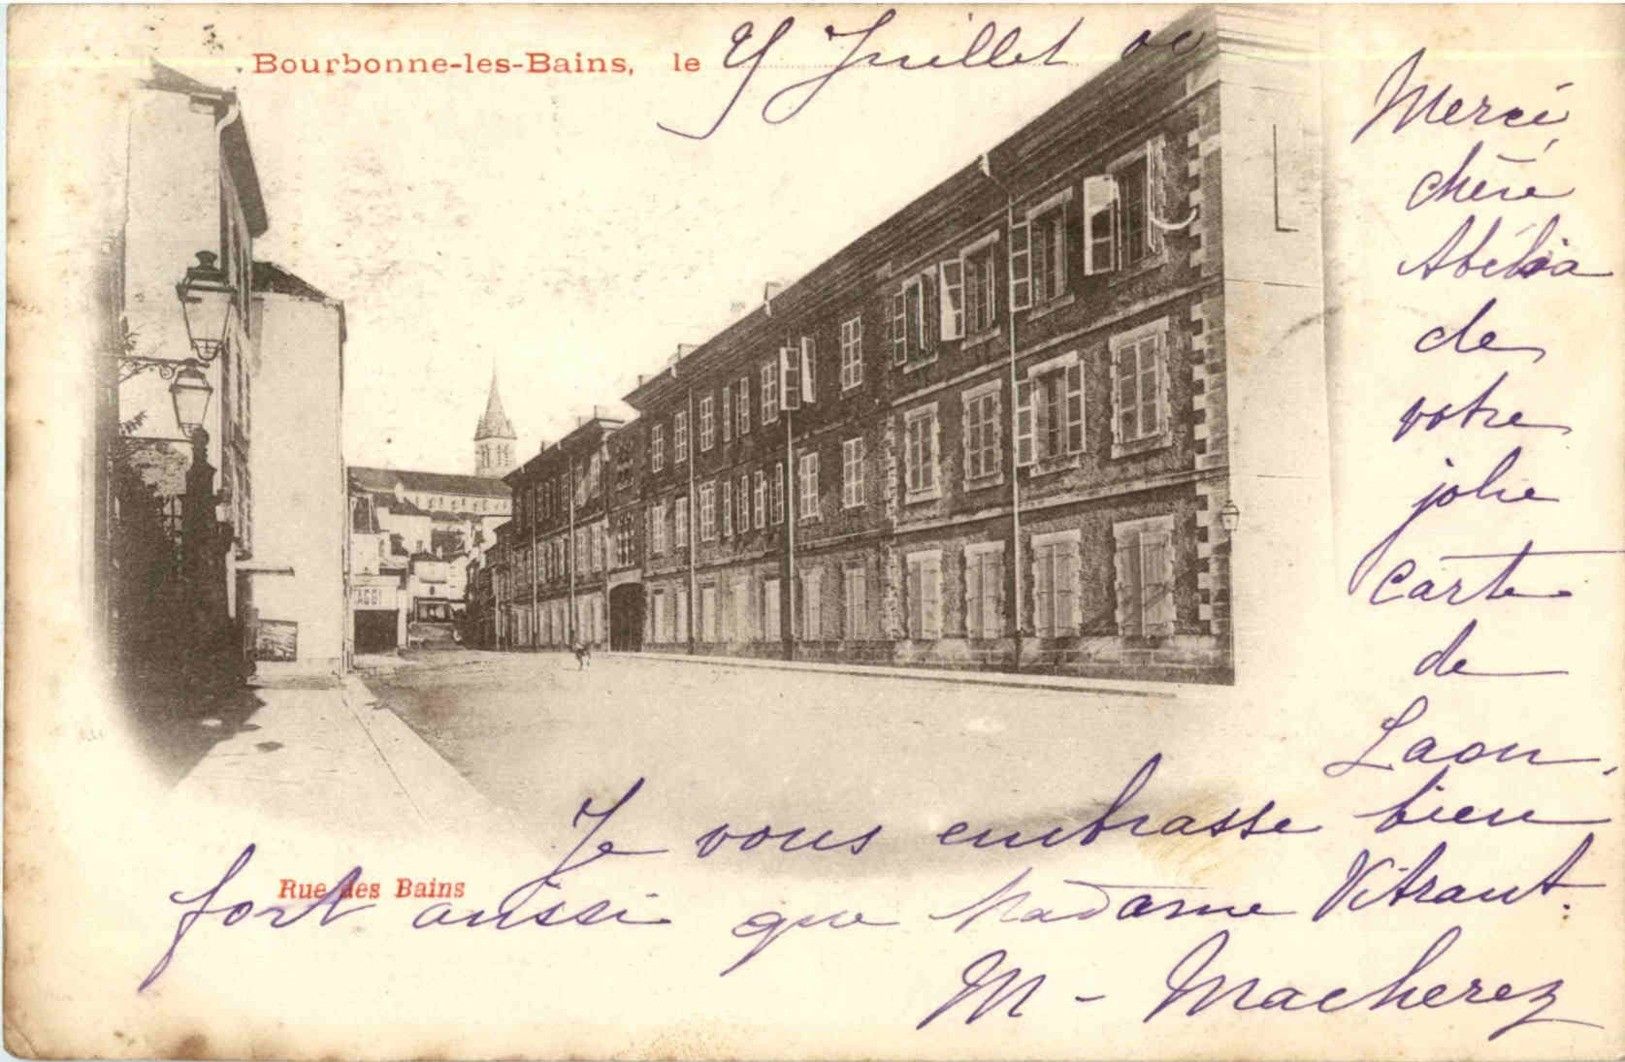 Bourbonne-les-Bains, le Juillet 00
Merci
chère
Abélia
de
votre
jolie
carte
de
Laon.
Je vous embrasse bien
fort aussi que Madame Vitrant.
M - Macherez
Rue des Bains